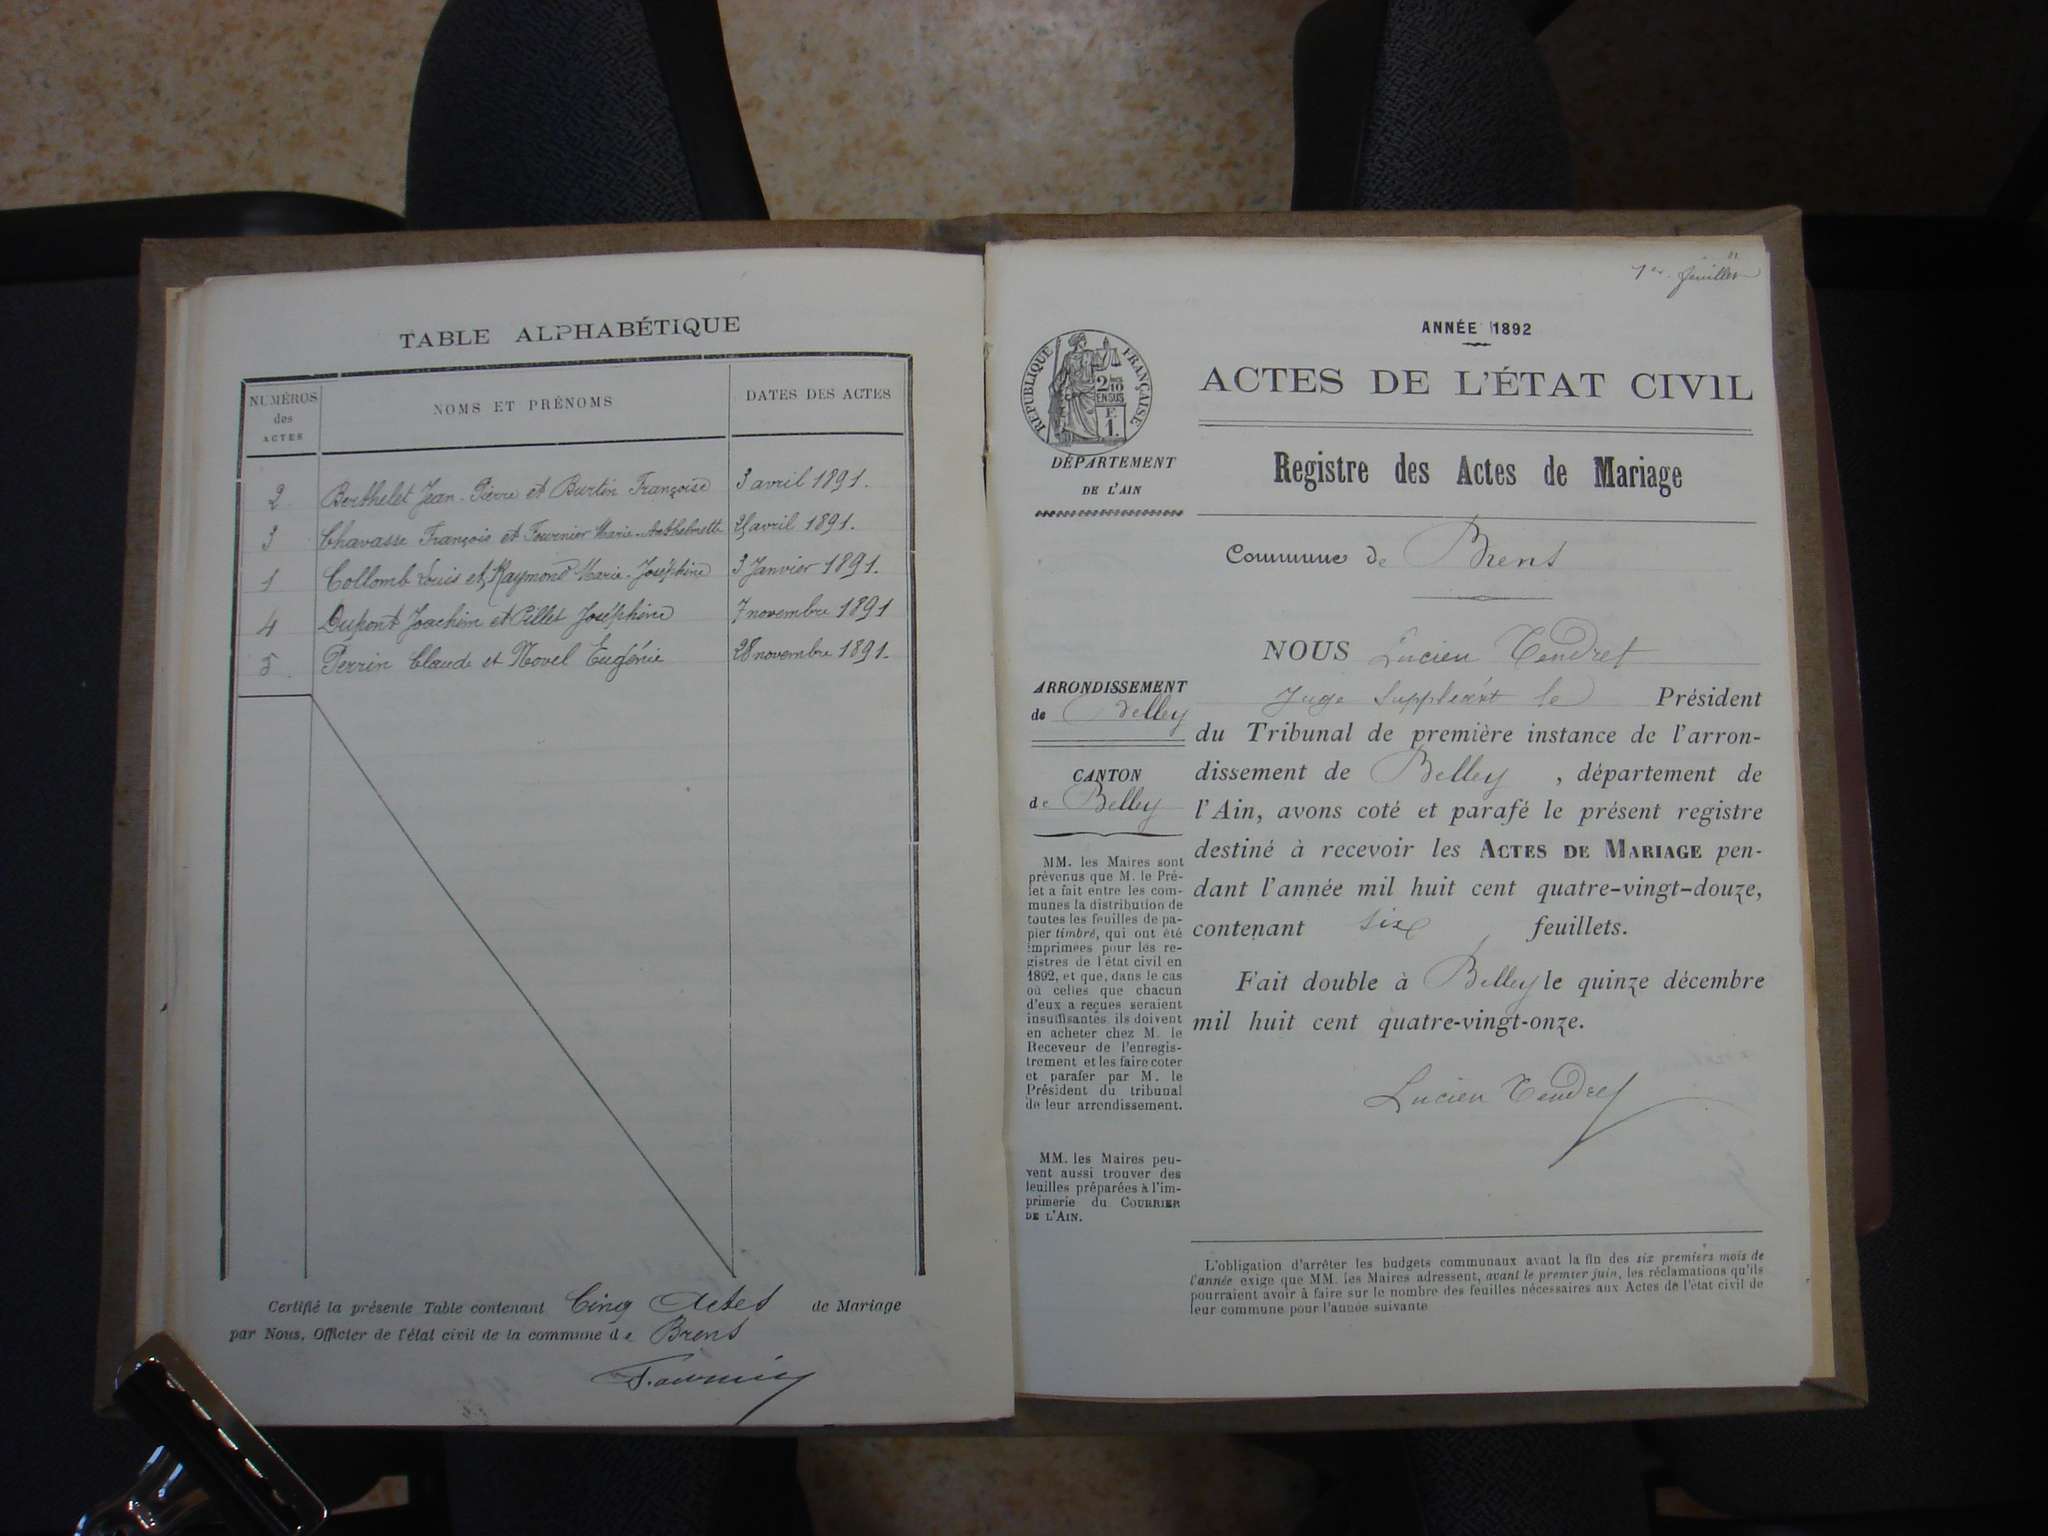 TABLE ALPHABÉTIQUE
NUMÉROS
des
ACTES
NOMS ET PRÉNOMS
DATES DES ACTES
2 Berthelet Jean-Pierre et Burtin Françoise 3 avril 1891.
3 Chavasse François et Fournier Marie-Anthelmette 21 avril 1891.
1 Collomb Louis et Raymond Marie-Joséphine 3 Janvier 1891.
4 Dupont Joachim et Pillet Joséphine 7 novembre 1891
5 Perrin Claude et Novel Eugénie 28 novembre 1891.
Certifié la présente Table contenant Cinq Actes de Mariage
par Nous, Officier de l'état civil de la commune de Brens
Fournier
1er feuillet
RÉPUBLIQUE FRANÇAISE
2/10
EN SUS
F.
1.
DÉPARTEMENT
DE L'AIN
ARRONDISSEMENT
de Belley
CANTON
de Belley
MM. les Maires sont
prévenus que M. le Pré-
fet a fait entre les com-
munes la distribution de
toutes les feuilles de pa-
pier timbré, qui ont été
imprimées pour les re-
gistres de l'état civil en
1892, et que, dans le cas
où celles que chacun
d'eux a reçues seraient
insuffisantes ils doivent
en acheter chez M. le
Receveur de l'enregis-
trement et les faire coter
et parafer par M. le
Président du tribunal
de leur arrondissement.
MM. les Maires peu-
vent aussi trouver des
feuilles préparées à l'im-
primerie du COURRIER
DE L'AIN.
ANNÉE 1892
ACTES DE L'ÉTAT CIVIL
Registre des Actes de Mariage
Commune de Brens
NOUS Lucien Tendret
Juge Suppléant le Président
du Tribunal de première instance de l'arron-
dissement de Belley, département de
l'Ain, avons coté et parafé le présent registre
destiné à recevoir les ACTES DE MARIAGE pen-
dant l'année mil huit cent quatre-vingt-douze,
contenant six feuillets.
Fait double à Belley le quinze décembre
mil huit cent quatre-vingt-onze.
Lucien Tendret
L'obligation d'arrêter les budgets communaux avant la fin des six premiers mois de
l'année exige que MM. les Maires adressent, avant le premier juin, les réclamations qu'ils
pourraient avoir à faire sur le nombre des feuilles nécessaires aux Actes de l'état civil de
leur commune pour l'année suivante